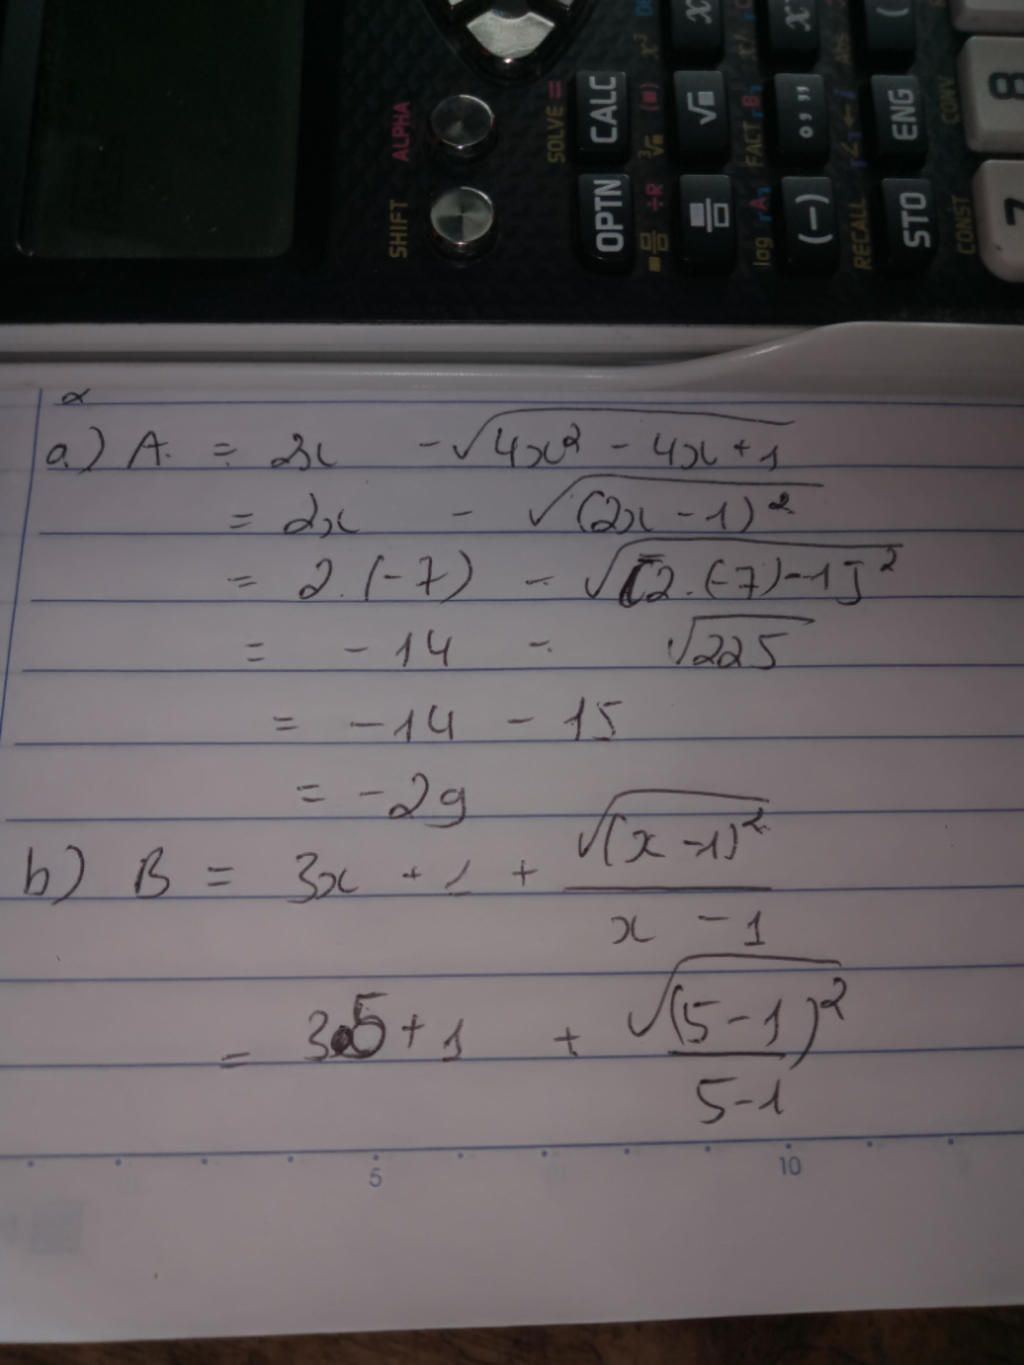 SHIFT ALPHA
SOLVE =
OPTN CALC
÷R
log FACT
(−) °,,,
RECALL
STO ENG
CONST CONV
7 8
a.) A. = 2x - √(4x² - 4x + 1)
= 2x - √((2x - 1)²)
= 2.(-7) - √([2.(-7)-1]²)
= -14 - √225
= -14 - 15
= -29
b) B = 3x + 1 + √((x - 1)²) / (x - 1)
= 3.5 + 1 + √((5 - 1)²) / (5-1)
5 10